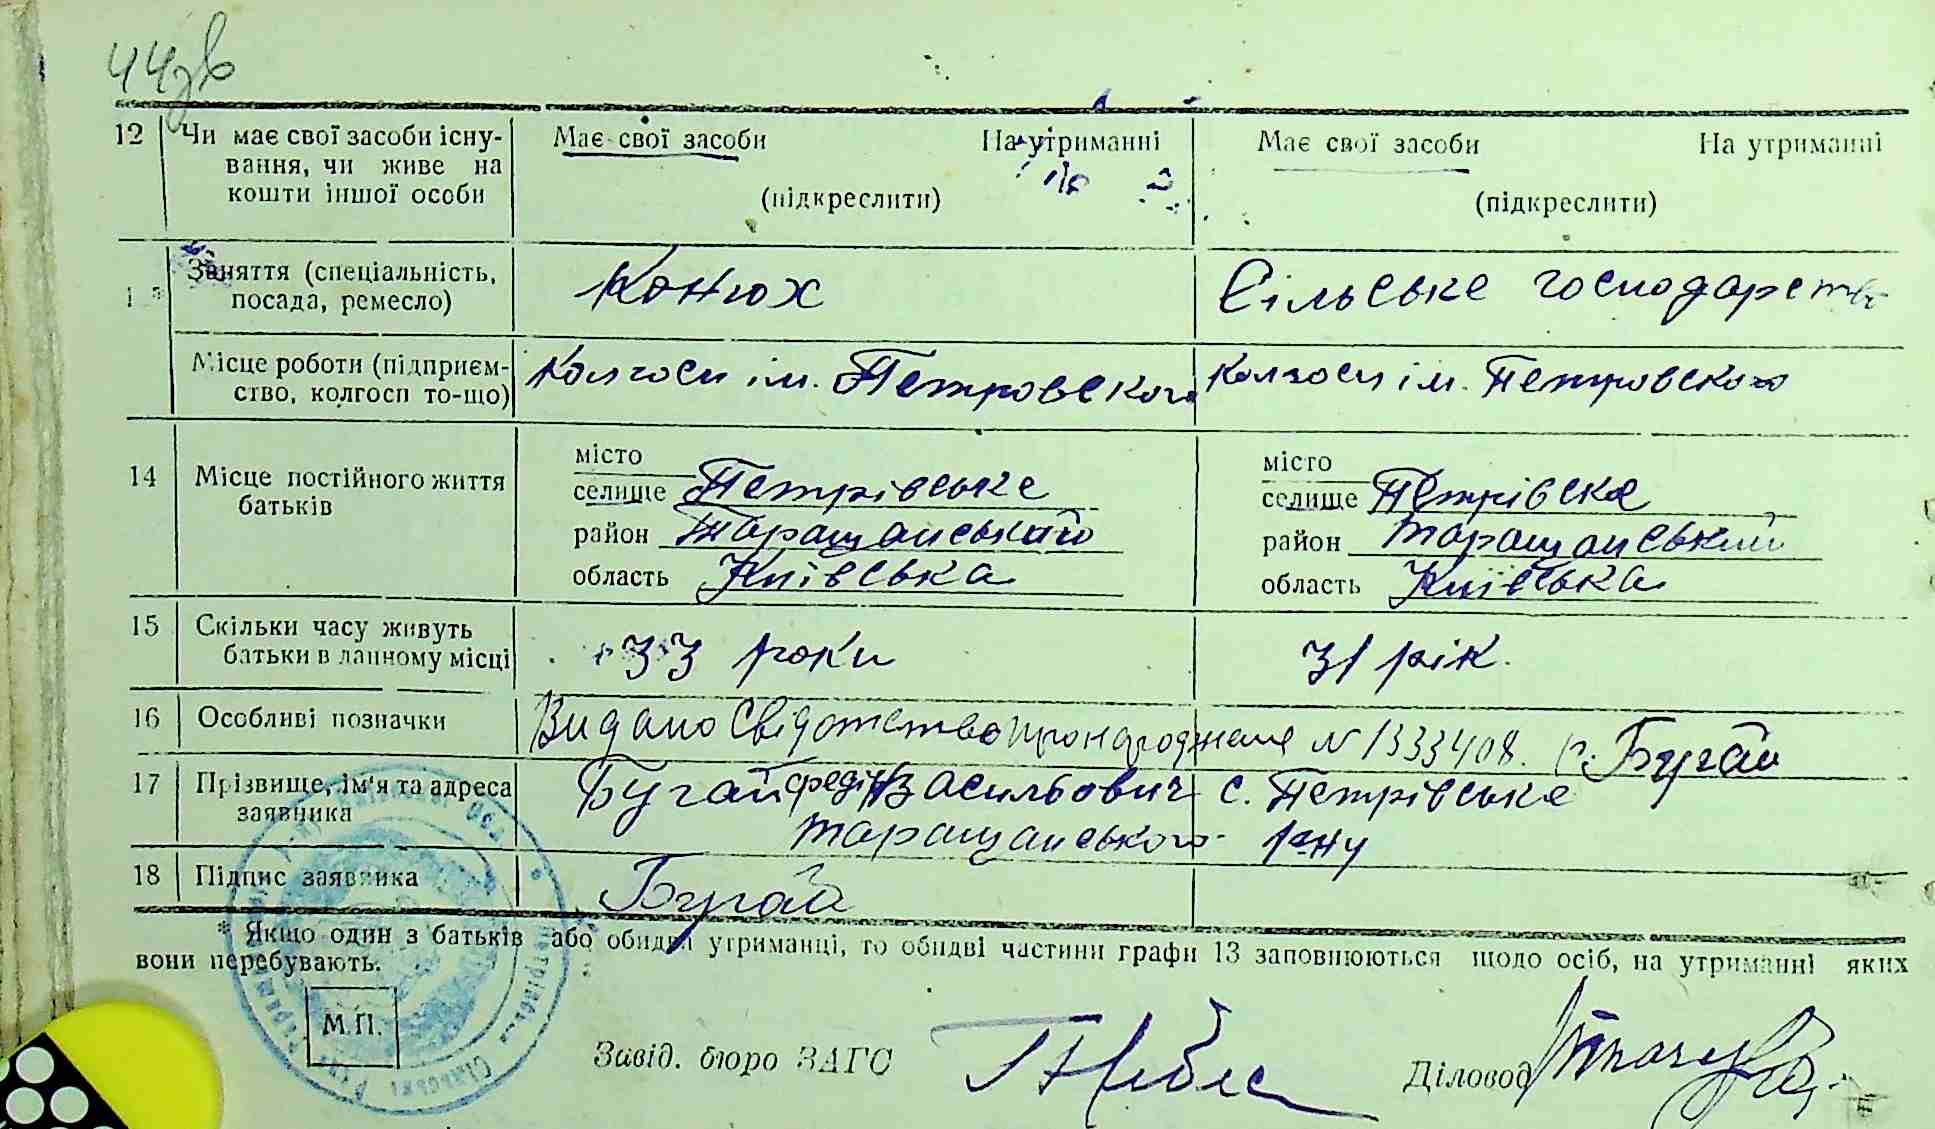 44зв
12 Чи має свої засоби існу- Має свої засоби На утриманні Має свої засоби На утриманні
вання, чи живе на
кошти іншої особи (підкреслити) (підкреслити)
Заняття (спеціальність, Конюх Сільське господарство
посада, ремесло)
Місце роботи (підприєм- Колгосп ім. Петровского Колгосп ім. Петровского
ство, колгосп то-що)
місто місто
14 Місце постійного життя селище Петрівське селище Петрівске
батьків район Таращанського район Таращанський
область Київська область Київська
15 Скільки часу живуть 33 роки 31 рік.
батьки в данному місці
16 Особливі позначки Видано свідотство про народження N 1333408. Бугай
17 Прізвище, ім'я та адреса Бугай Федір Васильович с. Петрівське
заявника Таращанського р-ну
18 Підпис заявника Бугай
* Якщо один з батьків або обидва утриманці, то обидві частини графи 13 заповнюються щодо осіб, на утриманні яких
вони перебувають.
М.П.
Завід. бюро ЗАГС
Діловод